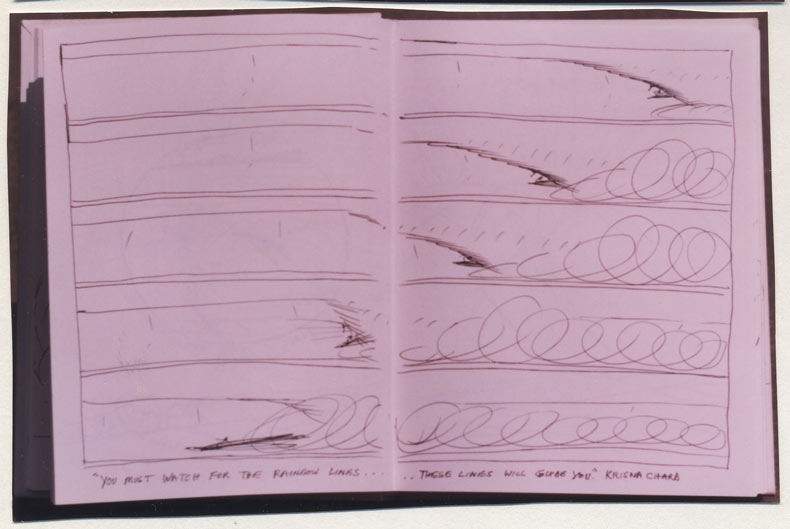 "YOU MUST WATCH FOR THE RAINBOW LINES . . . . . . THESE LINES WILL GUIDE YOU." KRISNA CHARA